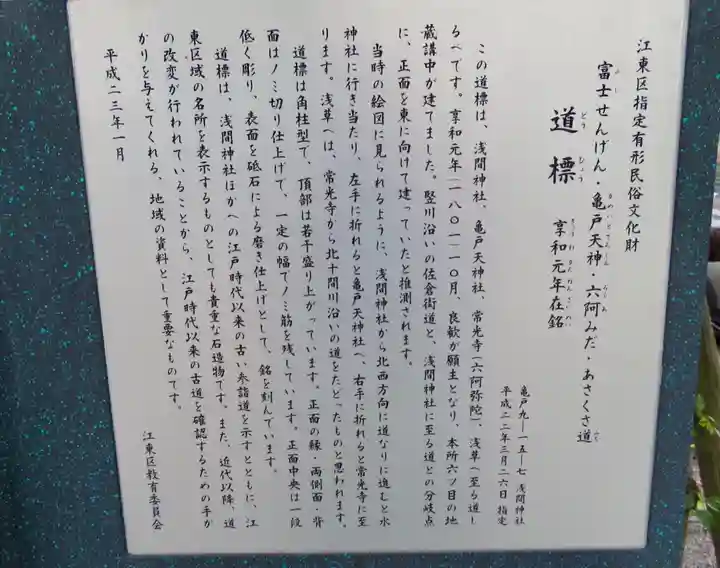 江東区指定有形民俗文化財
富士せんげん・亀戸天神・六阿みだ・あさくさ道
道標 享和元年在銘
亀戸九―一五―七 浅間神社
平成二二年三月二六日指定
この道標は、浅間神社、亀戸天神社、常光寺(六阿弥陀)、浅草へ至る道し
るべです。享和元年(一八〇一)一〇月、良歓が願主となり、本所六ツ目の地
蔵講中が建てました。竪川沿いの佐倉街道と、浅間神社に至る道との分岐点
に、正面を東に向けて建っていたと推測されます。
当時の絵図に見られるように、浅間神社から北西方向に道なりに進むと水
神社に行き当たり、左手に折れると亀戸天神社へ、右手に折れると常光寺に至
ります。浅草へは、常光寺から北十間川沿いの道をたどったものと思われます。
道標は角柱型で、頂部は若干盛り上がっています。正面の縁・両側面・背
面はノミ切り仕上げで、一定の幅でノミ筋を残しています。正面中央は一段
低く彫り、表面を砥石による磨き仕上げとして、銘を刻んでいます。
道標は、浅間神社ほかへの江戸時代以来の古い参詣道を示すとともに、江
東区域の名所を表示するものとしても貴重な石造物です。また、近代以降、道
の改変が行われていることから、江戸時代以来の古道を確認するための手が
かりを与えてくれる、地域の資料として重要なものです。
平成二三年一月
江東区教育委員会